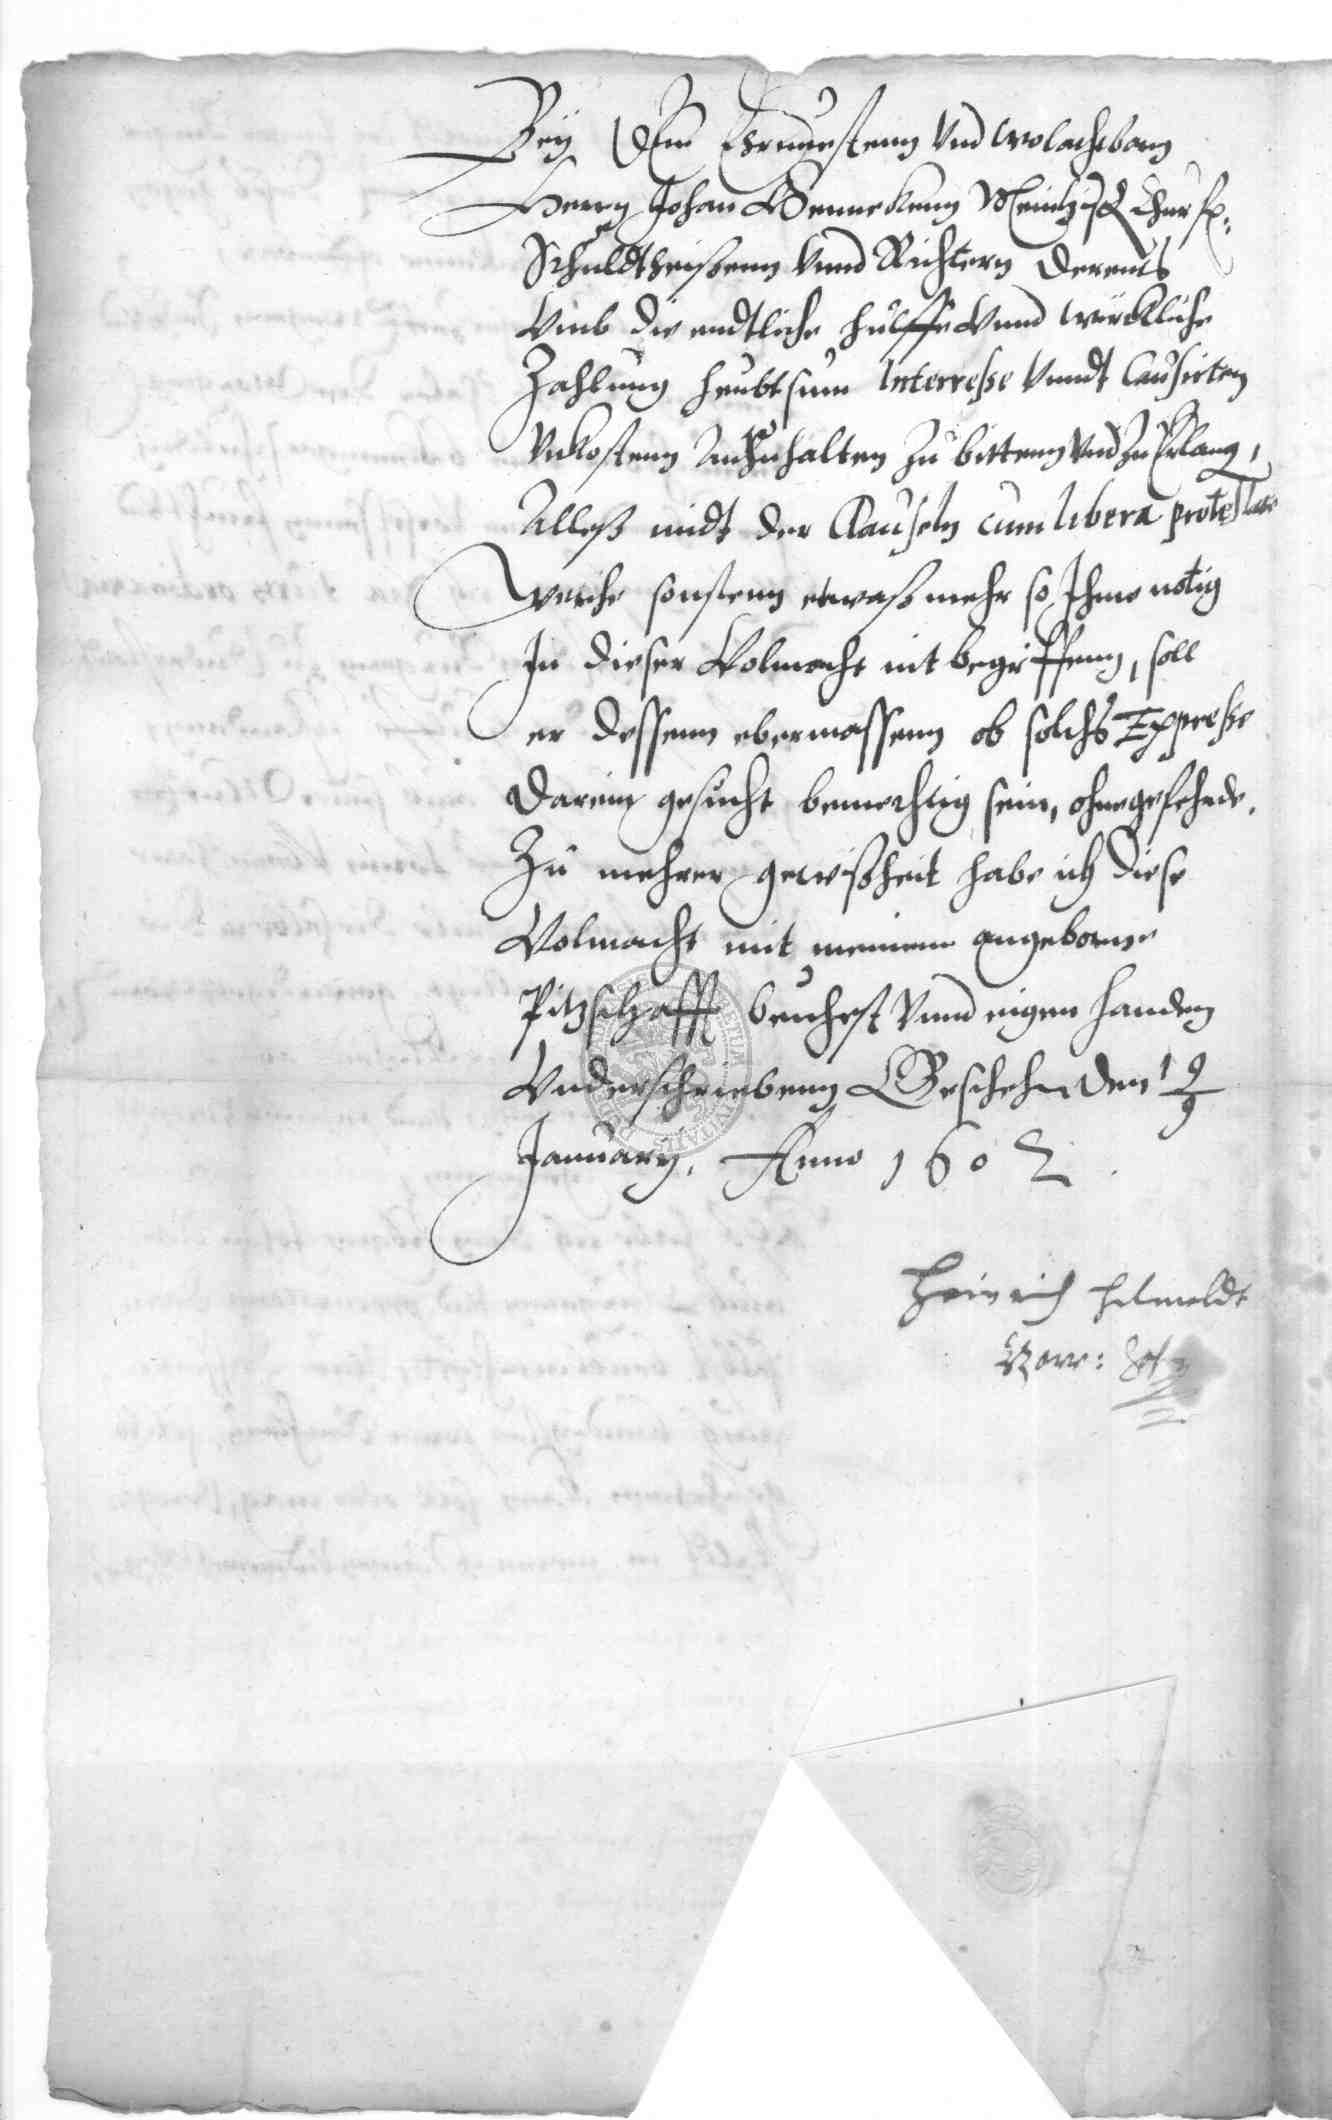 Bey dem Ernuesten vnd wolachtbarn
Herrn Johan Wenneken Meintzisch Churf.
Schuldtheißenn vnnd Richtern
Vmb die endtliche hulffe vnnd würckliche
Zahlung heubtsum Interreße vnndt Causirten
Vnkostenn Anzuhalten zu bittenn vnd zu Erlang,
Alleß midt der Clauseln cum libera protestate
Welche sonstenn etwaß mehr so Ihme notig
In dieser Volmacht nit begriffenn, soll
er dessenn ebermassenn ob solchs Expreße
Darein gesucht bemechtig sein, ohne gefehrde.
Zu mehrer gewißheit habe ich diese
Volmacht mit meinem angeborne
Pitzschafft vnnd eigen handen
Vnderschriebenn Geschehn den 19
January. Anno 1602.
Heinrich Helmoldt